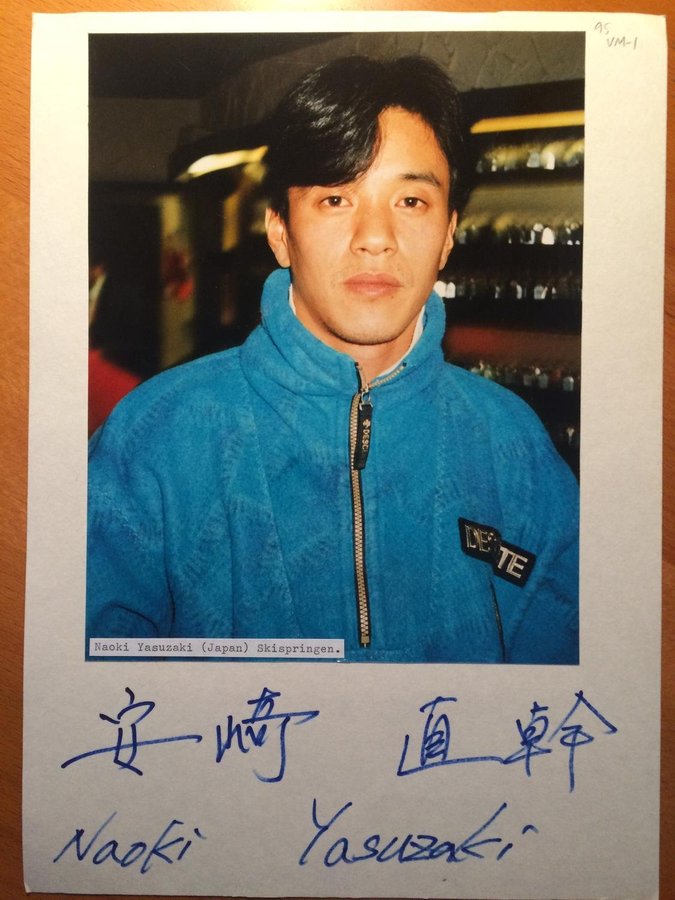 95
VM-1
DESC
DES TE
Naoki Yasuzaki (Japan) Skispringen.
安﨑 直幹
Naoki Yasuzaki